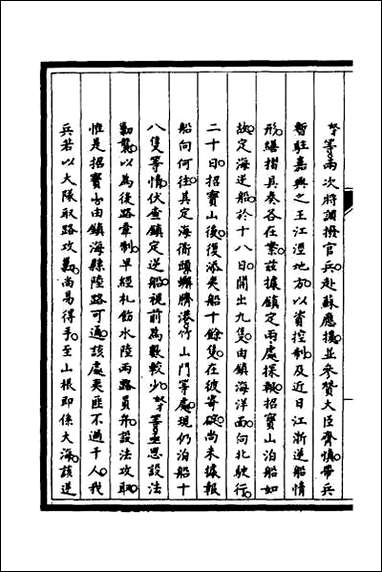 等兩次將調撥官兵赴蘇應援並參贊大臣齊慎帶兵
暫駐嘉興之王江涇地方以資控制及近日江浙逆船情
形繕摺具奏各在案茲據鎮定兩處探報招寶山泊船如
故定海逆船於十八日開出九隻由鎮海洋面向北駛行
二十日招寶山後復添夷船十餘隻在彼寄碇尚未據報
船向何往其定海衜頭蠏臍港竹山門等處現仍泊船十
八隻等情伏查鎮定逆船視前為數較少等亟思設法
勦襲以為後路牽制早經札飭水陸兩路員弁設法攻取
惟是招寶山由鎮海縣陸路可通該處夷匪不過千人我
兵若以大隊取路攻尚易得手至山根即係大海該逆